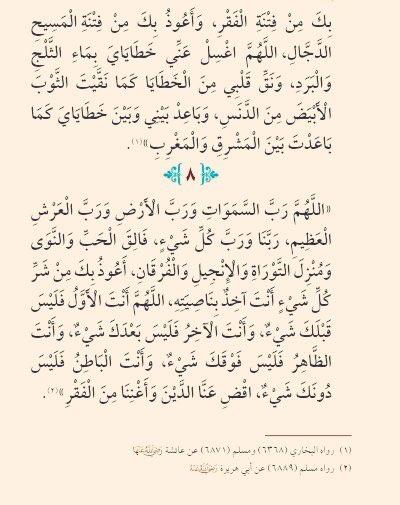 بِكَ مِنْ فِتْنَةِ الْفَقْرِ، وَأَعُوذُ بِكَ مِنْ فِتْنَةِ الْمَسِيحِ
الدَّجَّالِ، اللَّهُمَّ اغْسِلْ عَنِّي خَطَايَايَ بِمَاءِ الثَّلْجِ
وَالْبَرَدِ، وَنَقِّ قَلْبِي مِنَ الْخَطَايَا كَمَا نَقَّيْتَ الثَّوْبَ
الْأَبْيَضَ مِنَ الدَّنَسِ، وَبَاعِدْ بَيْنِي وَبَيْنَ خَطَايَايَ كَمَا
بَاعَدْتَ بَيْنَ الْمَشْرِقِ وَالْمَغْرِبِ»(١).
٨
«اللَّهُمَّ رَبَّ السَّمَوَاتِ وَرَبَّ الْأَرْضِ وَرَبَّ الْعَرْشِ
الْعَظِيمِ، رَبَّنَا وَرَبَّ كُلِّ شَيْءٍ، فَالِقَ الْحَبِّ وَالنَّوَى
وَمُنْزِلَ التَّوْرَاةِ وَالْإِنْجِيلِ وَالْفُرْقَانِ، أَعُوذُ بِكَ مِنْ شَرِّ
كُلِّ شَيْءٍ أَنْتَ آخِذٌ بِنَاصِيَتِهِ، اللَّهُمَّ أَنْتَ الْأَوَّلُ فَلَيْسَ
قَبْلَكَ شَيْءٌ، وَأَنْتَ الْآخِرُ فَلَيْسَ بَعْدَكَ شَيْءٌ، وَأَنْتَ
الظَّاهِرُ فَلَيْسَ فَوْقَكَ شَيْءٌ، وَأَنْتَ الْبَاطِنُ فَلَيْسَ
دُونَكَ شَيْءٌ، اقْضِ عَنَّا الدَّيْنَ وَأَغْنِنَا مِنَ الْفَقْرِ»(٢).
(١) رواه البخاري (٦٣٦٨) ومسلم (٦٨٧١) عن عائشة رضي الله عنها
(٢) رواه مسلم (٦٨٨٩) عن أبي هريرة رضي الله عنه